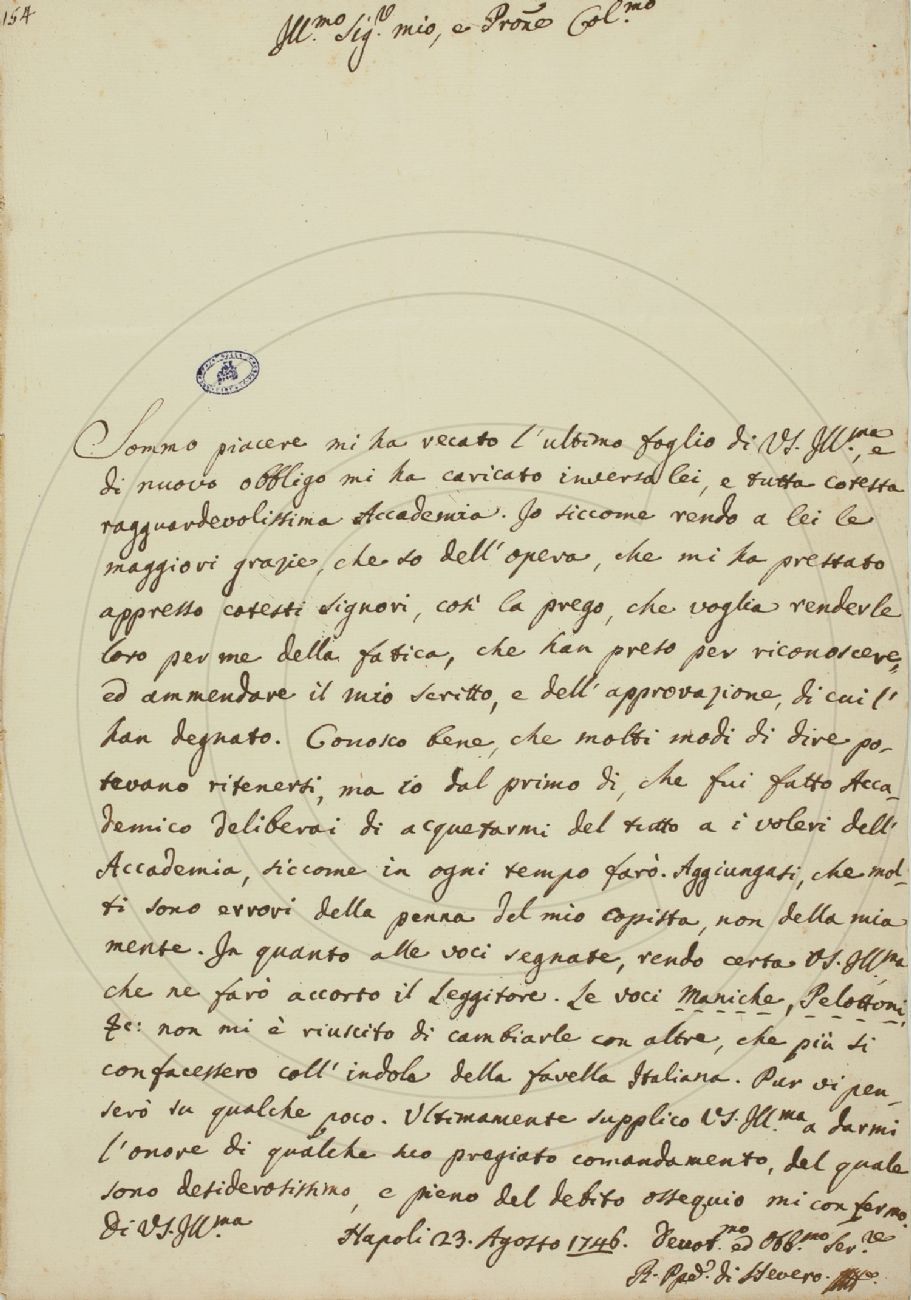 154
Ill.mo Sig.r mio, e Prone Col.mo
Sommo piacere mi ha recato l'ultimo foglio di VS. Ill.ma, e
di nuovo obbligo mi ha caricato inverso lei, e tutta cotesta
ragguardevolissima Accademia. Io siccome rendo a lei le
maggiori grazie, che so dell'opera, che mi ha prestato
appresso cotesti Signori, così la prego, che voglia renderle
loro per me della fatica, che han preso per riconoscere,
ed ammendare il mio scritto, e dell'approvazione, di cui l'
han degnato. Conosco bene, che molti modi di dire po-
tevano ritenersi, ma io dal primo dì, che fui fatto Acca-
demico deliberai di acquetarmi del tutto a i voleri dell'
Accademia, siccome in ogni tempo farò. Aggiungasi, che mol-
ti sono errori della penna del mio copista, non della mia
mente. In quanto alle voci segnate, rendo certa VS. Ill.ma
che ne farò accorto il Leggitore. Le voci Maniche, Pelottoni,
&c: non mi è riuscito di cambiarle con altre, che più si
confacessero coll'indole della favella Italiana. Pur vi pen-
serò su qualche poco. Ultimamente supplico VS. Ill.ma a darmi
l'onore di qualche suo pregiato comandamento, del quale
sono desiderosissimo, e pieno del debito ossequio mi confermo.
Di VS. Ill.ma
Napoli 23. Agosto 1746. Devot.mo ed Obb.mo Ser.re
di Severo.